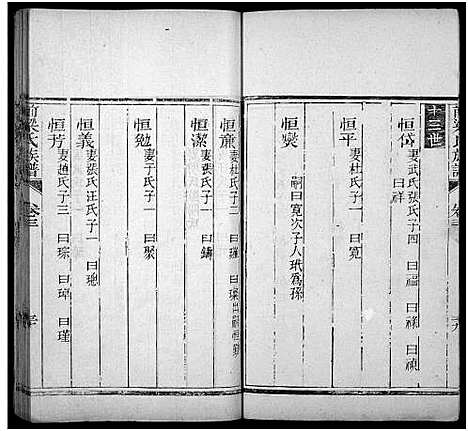 前梁氏族譜
卷三
十三世
恒岱
妻武氏張氏子四 曰福 曰禄 曰禎
曰祥
恒平
妻杜氏子一 曰寬
恒爕
嗣曰寬次子人玳為孫
恒廉
妻陳氏子二 曰瑾
恒潔
妻張氏子一 曰鑄
恒勉
妻于氏子一 曰聚
恒義
妻張氏汪氏子一 曰璁
恒芳
妻趙氏子三 曰琮 曰璋 曰瑾
前梁氏族譜
卷三